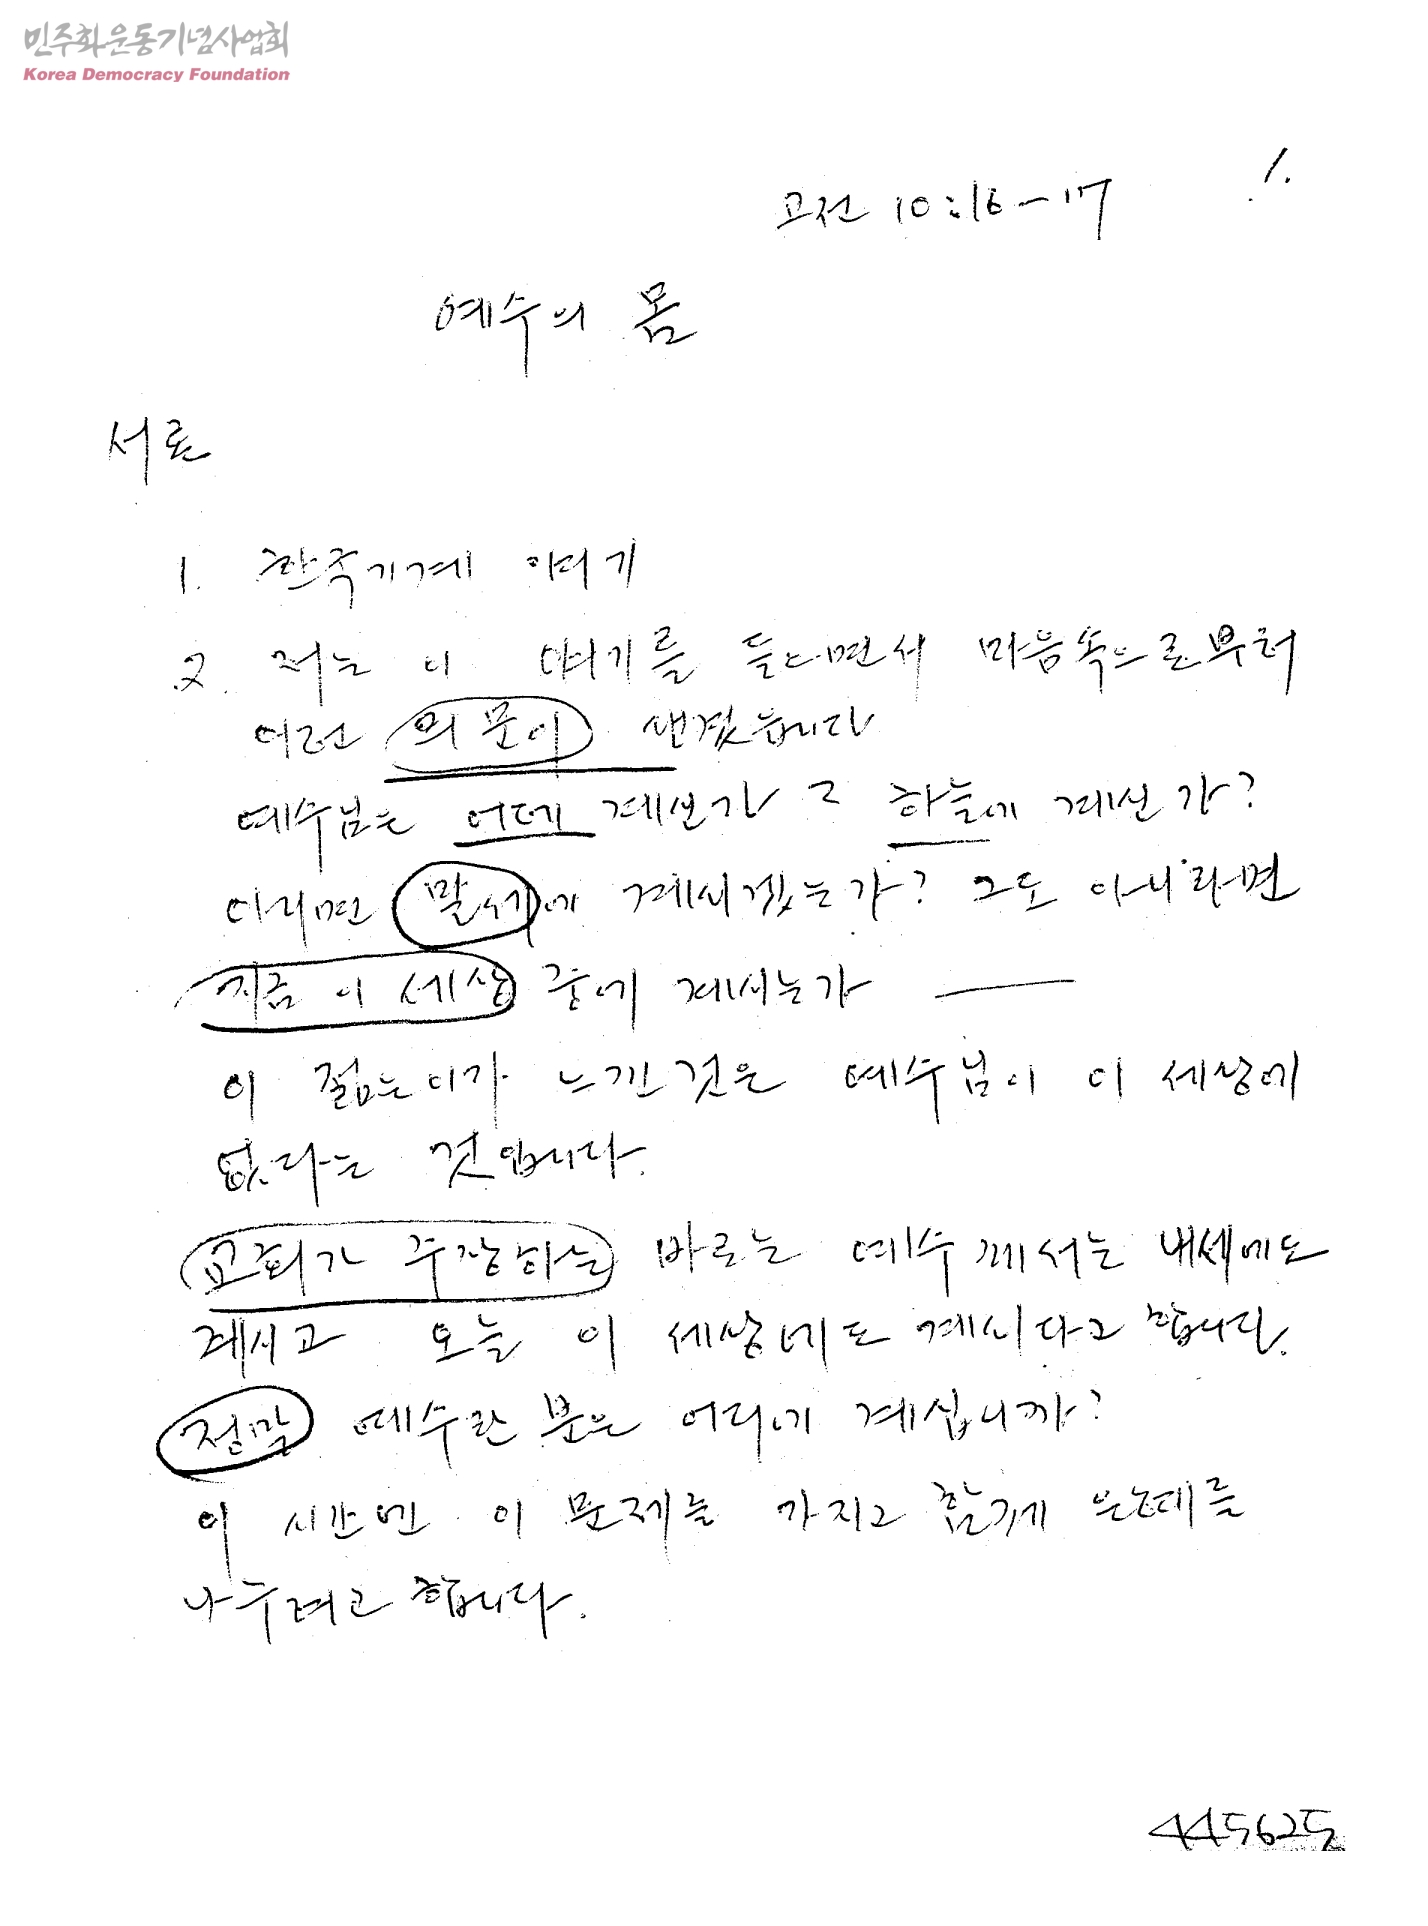 민주화운동기념사업회
Korea Democracy Foundation
1.
고전 10:16-17
예수의 몸
서론
1. 한국기계 이야기
2. 저는 이 얘기를 들으면서 마음속으로부터
이런 의문이 생겼습니다
예수님은 어데 계신가 그 하늘에 계신가?
아니면 말세에 계시겠는가? 그도 아니라면
지금 이 세상 중에 계시는가 ―
이 젊은이가 느낀것은 예수님이 이 세상에
없다는 것입니다.
교회가 주장하는 바로는 예수께서는 내세에도
계시고 오늘 이 세상에도 계시다고 합니다.
정말 예수란 분은 어디에 계십니까?
이 시간엔 이 문제를 가지고 함께 은혜를
나누려고 합니다.
445625